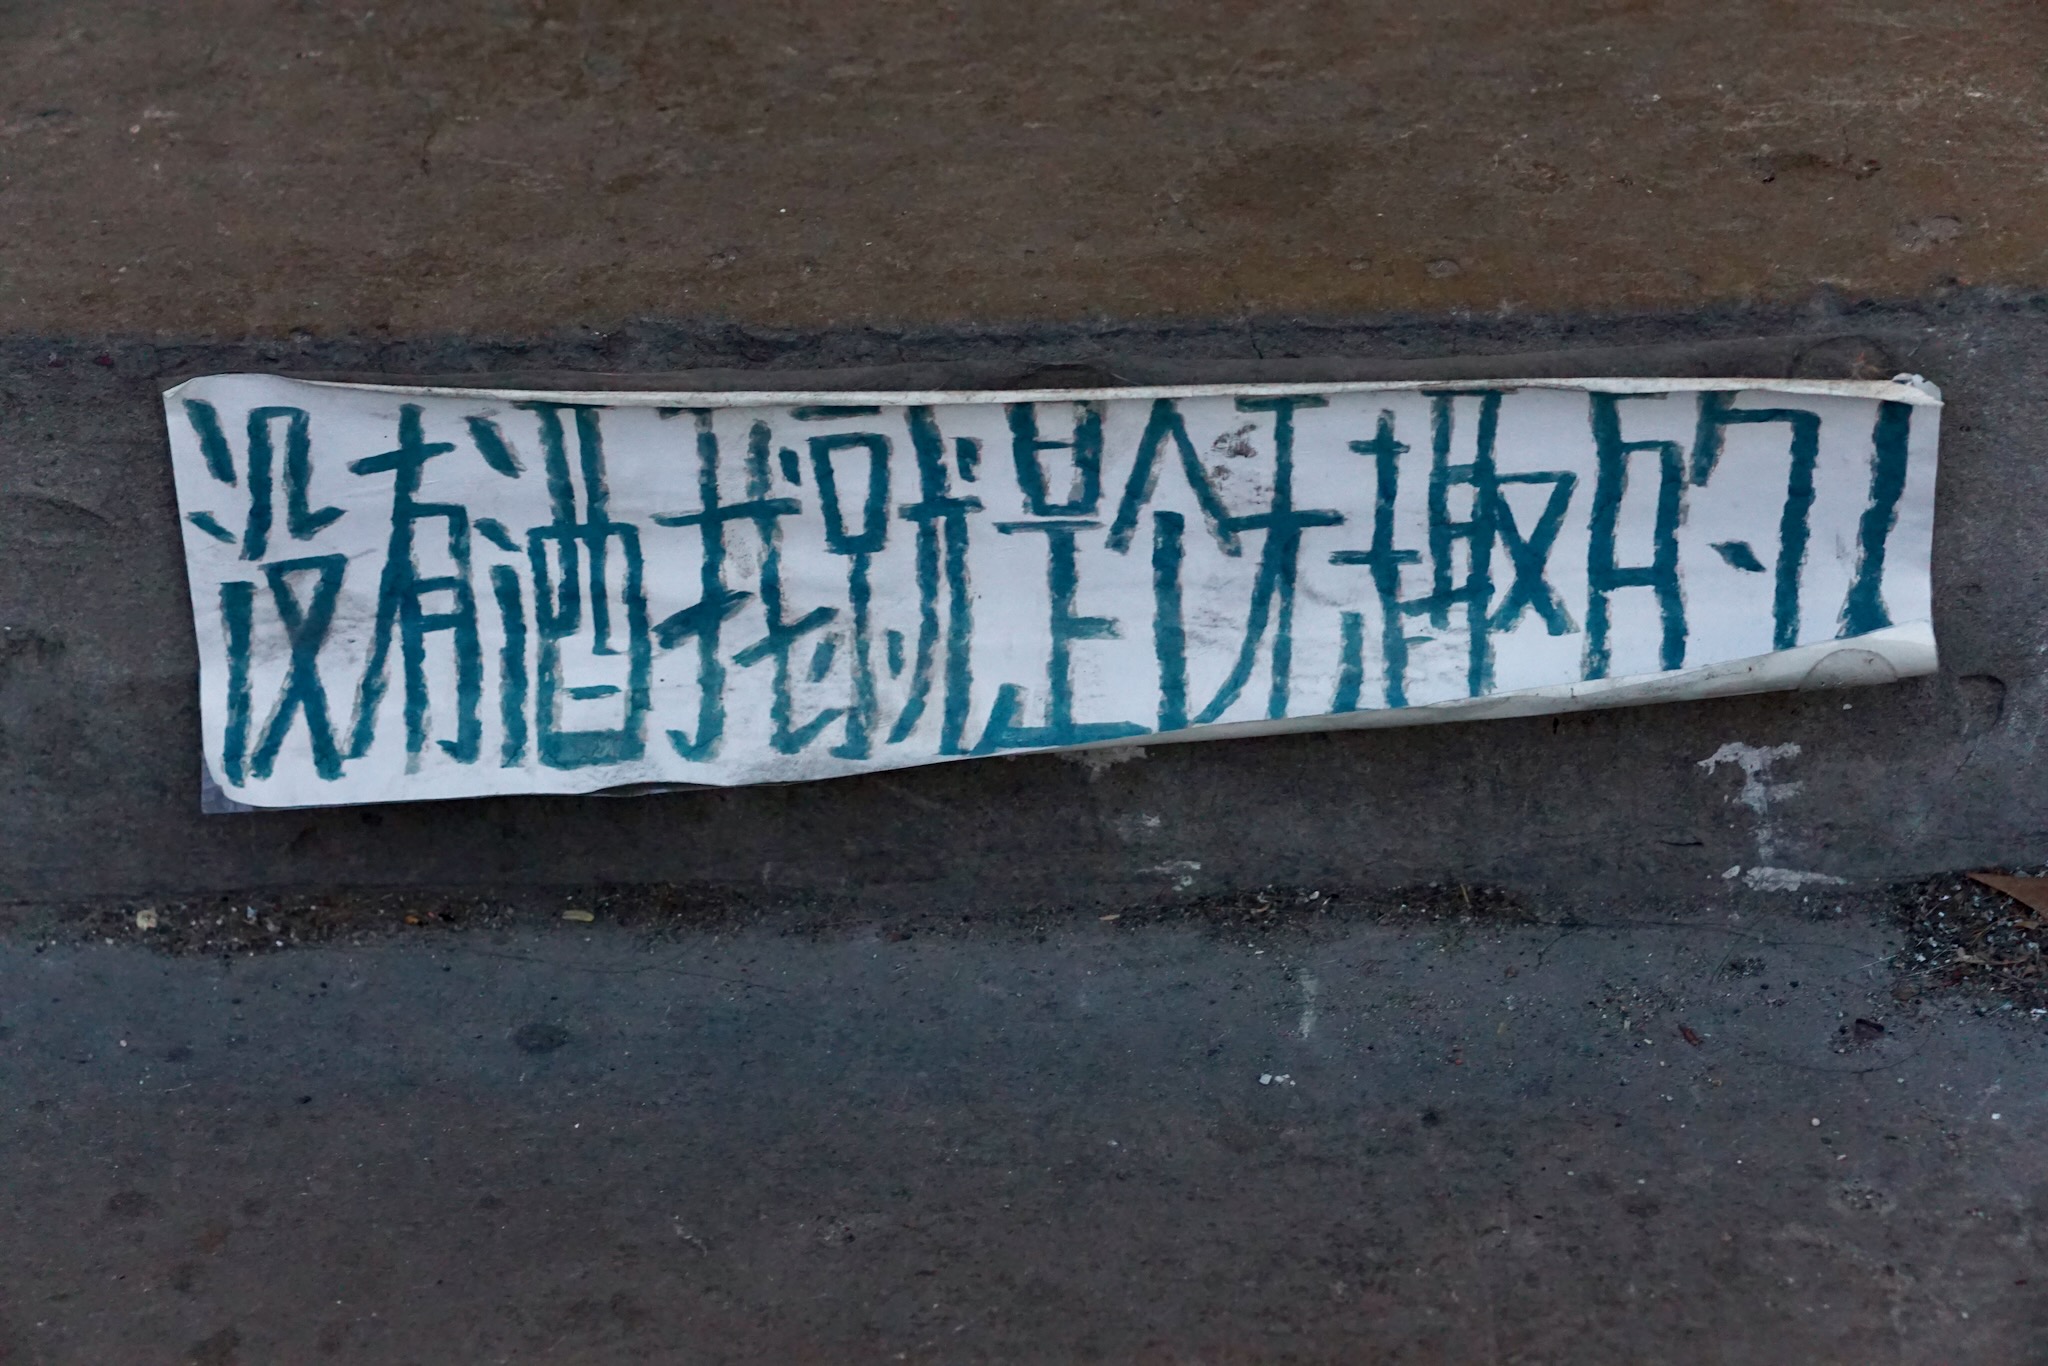 没有酒我就是个无趣的人